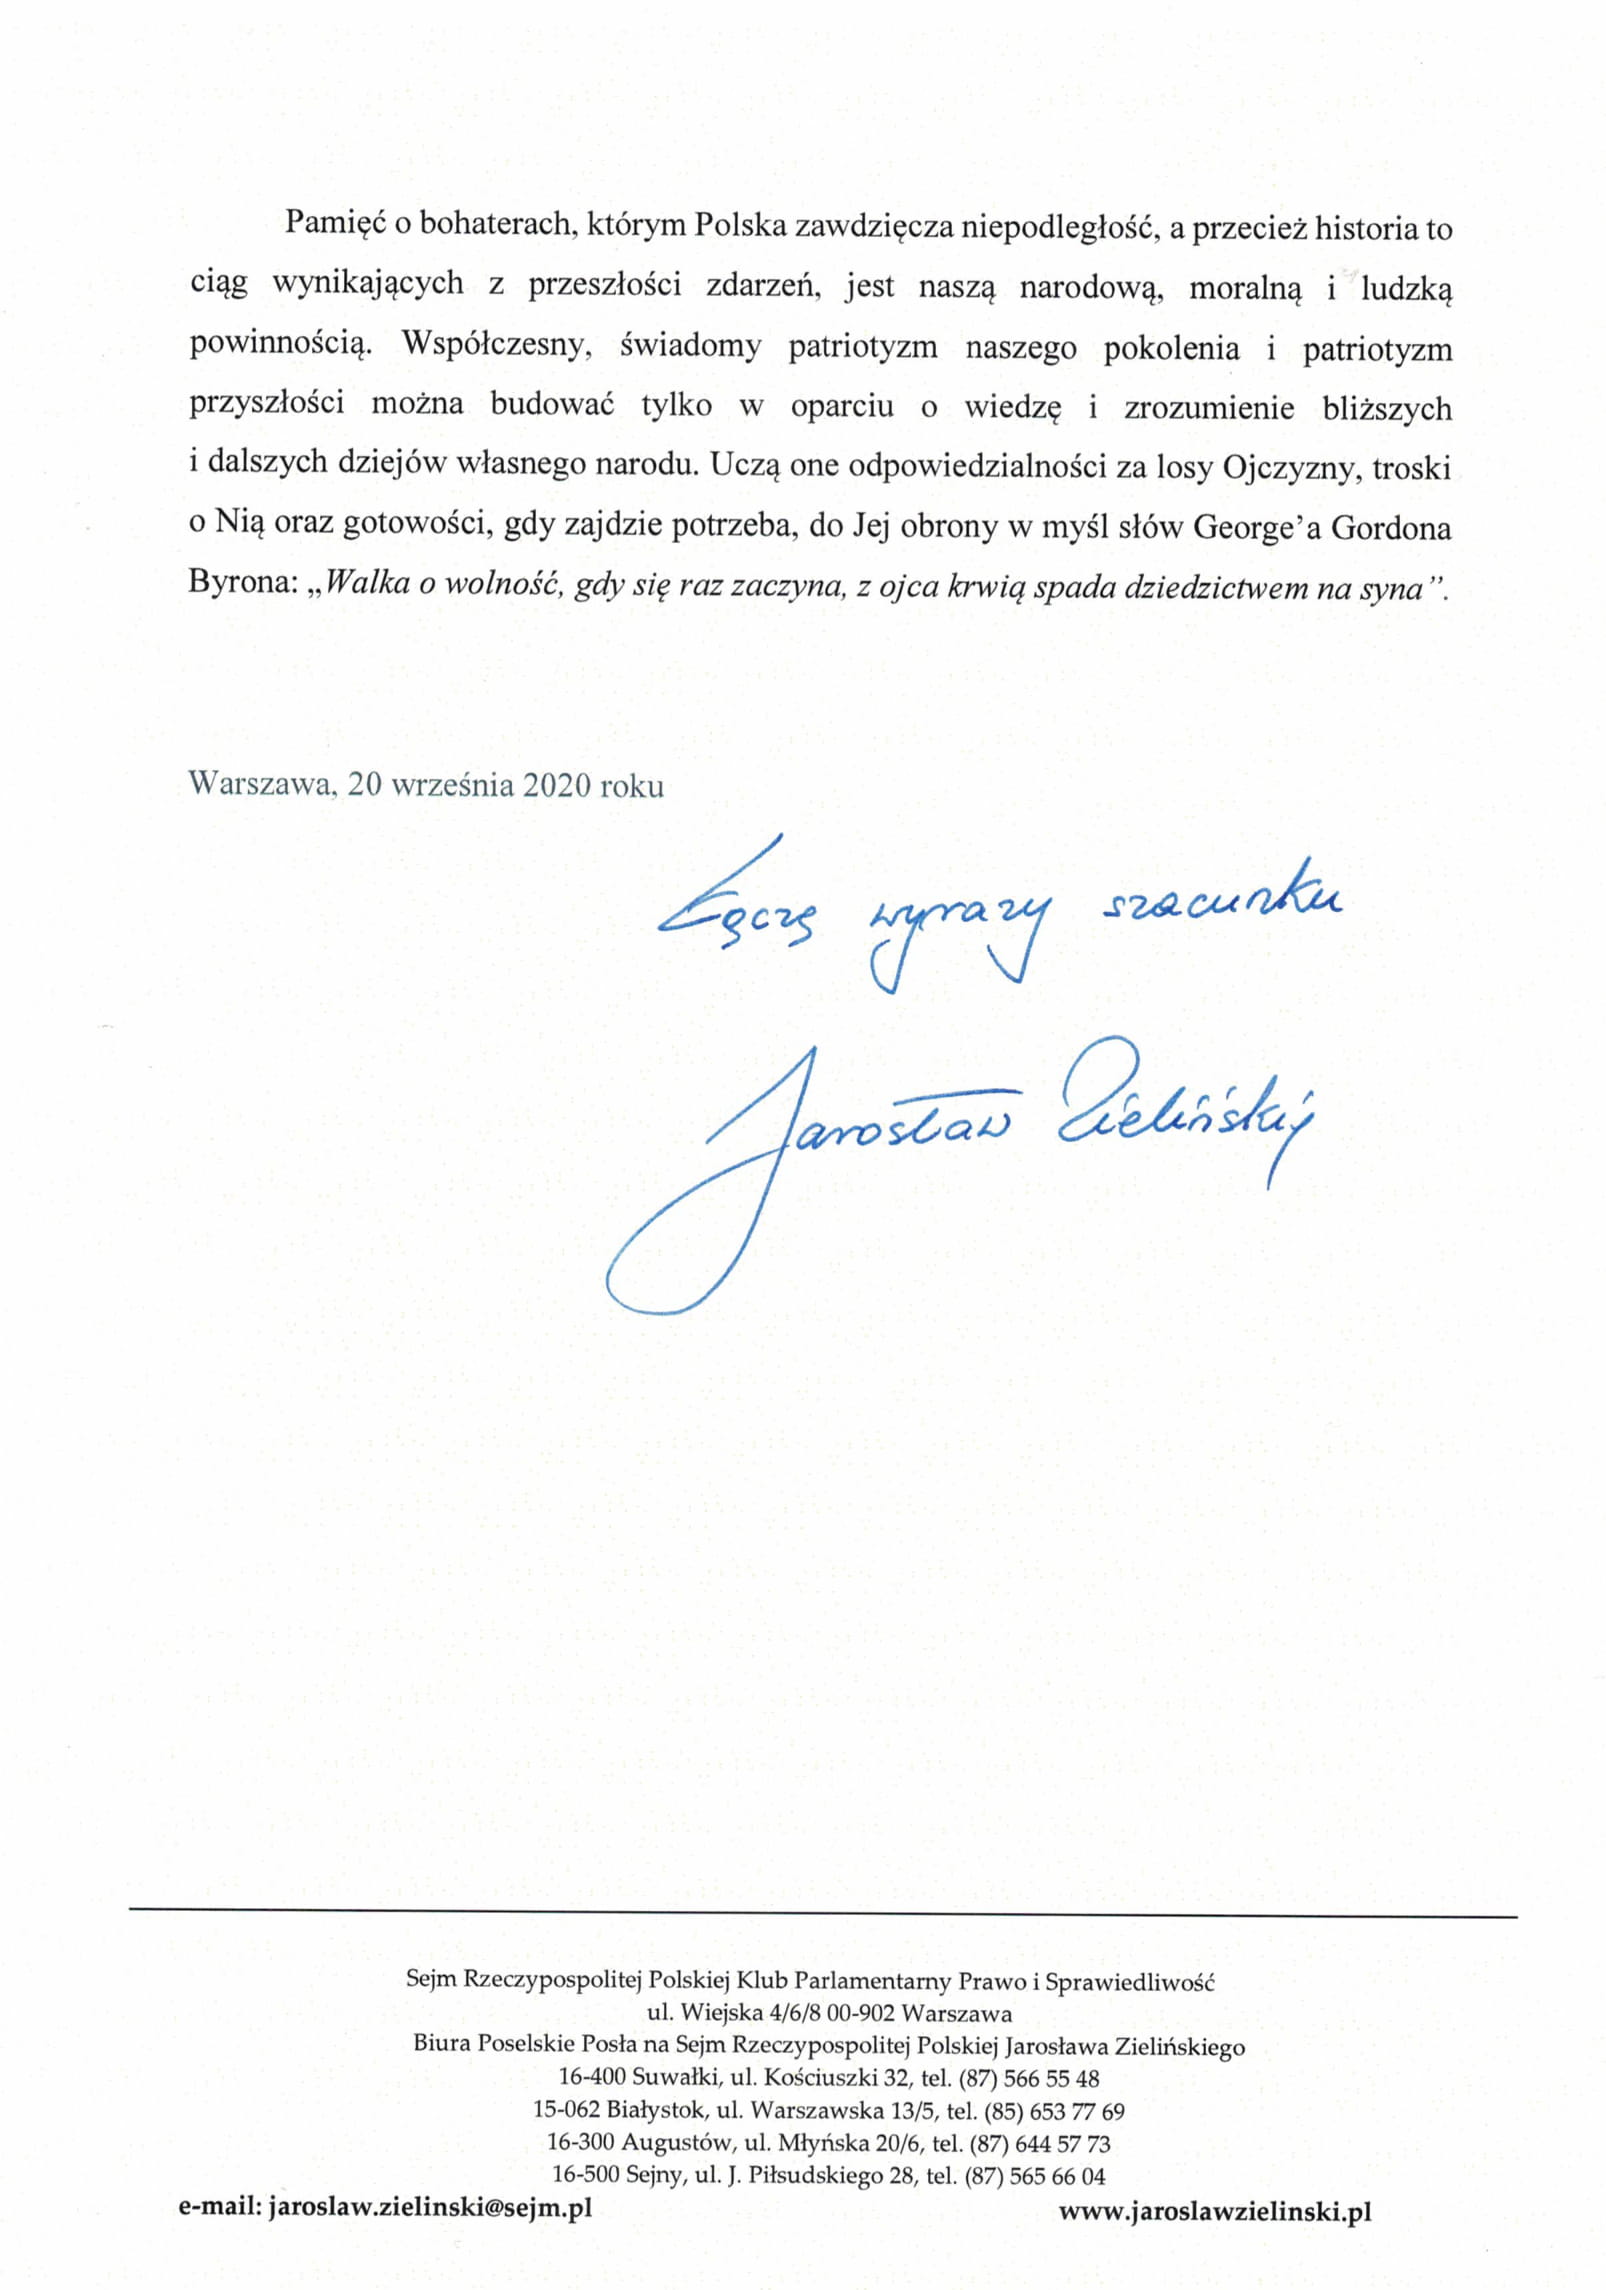 Pamięć o bohaterach, którym Polska zawdzięcza niepodległość, a przecież historia to
ciąg wynikających z przeszłości zdarzeń, jest naszą narodową, moralną i ludzką
powinnością. Współczesny, świadomy patriotyzm naszego pokolenia i patriotyzm
przyszłości można budować tylko w oparciu o wiedzę i zrozumienie bliższych
i dalszych dziejów własnego narodu. Uczą one odpowiedzialności za losy Ojczyzny, troski
o Nią oraz gotowości, gdy zajdzie potrzeba, do Jej obrony w myśl słów George’a Gordona
Byrona: „Walka o wolność, gdy się raz zaczyna, z ojca krwią spada dziedzictwem na syna”.
Warszawa, 20 września 2020 roku
Łączę wyrazy szacunku
Jarosław Zieliński
Sejm Rzeczypospolitej Polskiej Klub Parlamentarny Prawo i Sprawiedliwość
ul. Wiejska 4/6/8 00-902 Warszawa
Biura Poselskie Posła na Sejm Rzeczypospolitej Polskiej Jarosława Zielińskiego
16-400 Suwałki, ul. Kościuszki 32, tel. (87) 566 55 48
15-062 Białystok, ul. Warszawska 13/5, tel. (85) 653 77 69
16-300 Augustów, ul. Młyńska 20/6, tel. (87) 644 57 73
16-500 Sejny, ul. J. Piłsudskiego 28, tel. (87) 565 66 04
e-mail: jaroslaw.zielinski@sejm.pl www.jaroslawzielinski.pl